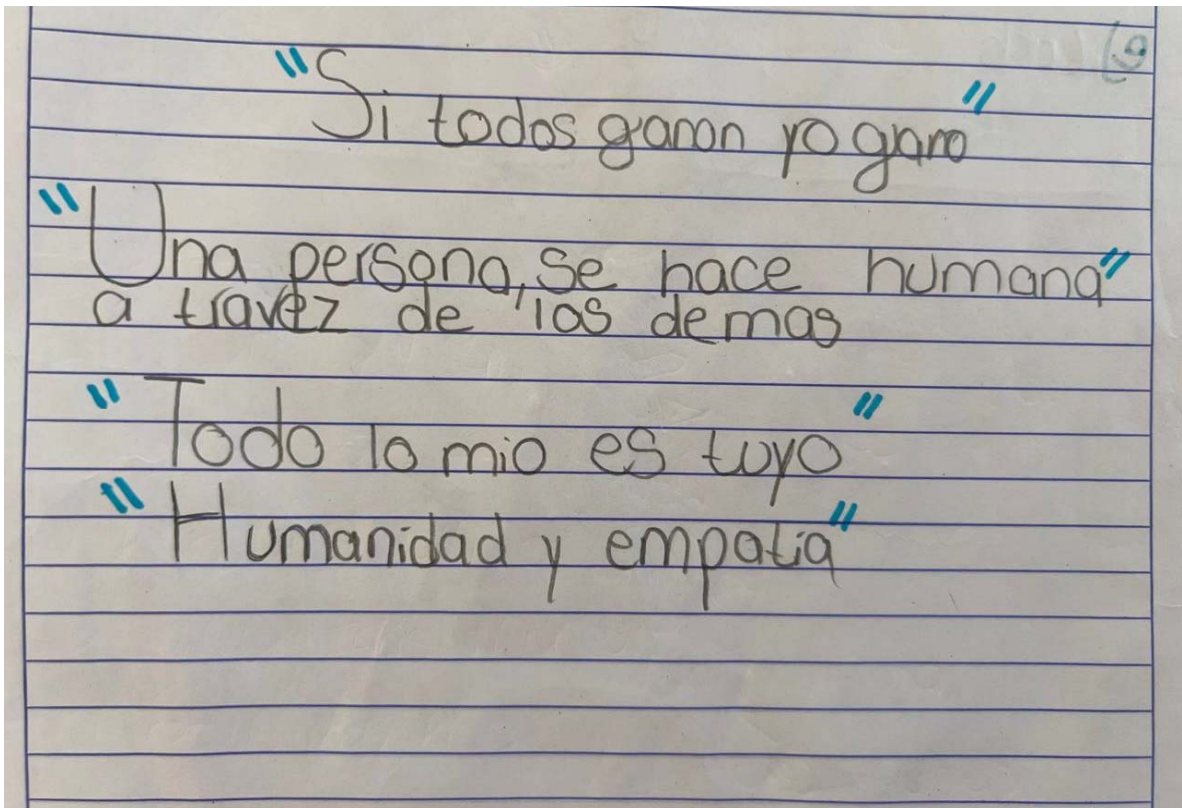 "Si todos ganan yo gano"
"Una persona, se hace humana"
a travez de los demas
"Todo lo mio es tuyo"
"Humanidad y empatia"